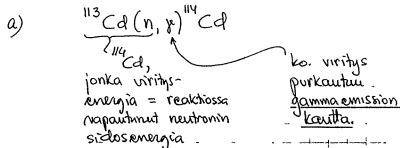 a) ¹¹³Cd (n, γ) ¹¹⁴Cd
¹¹⁴Cd,
jonka viritys-
energia = reaktiossa
vapautunut neutronin
sidosenergia
ko. viritys
purkautuu
gammaemission
kautta.